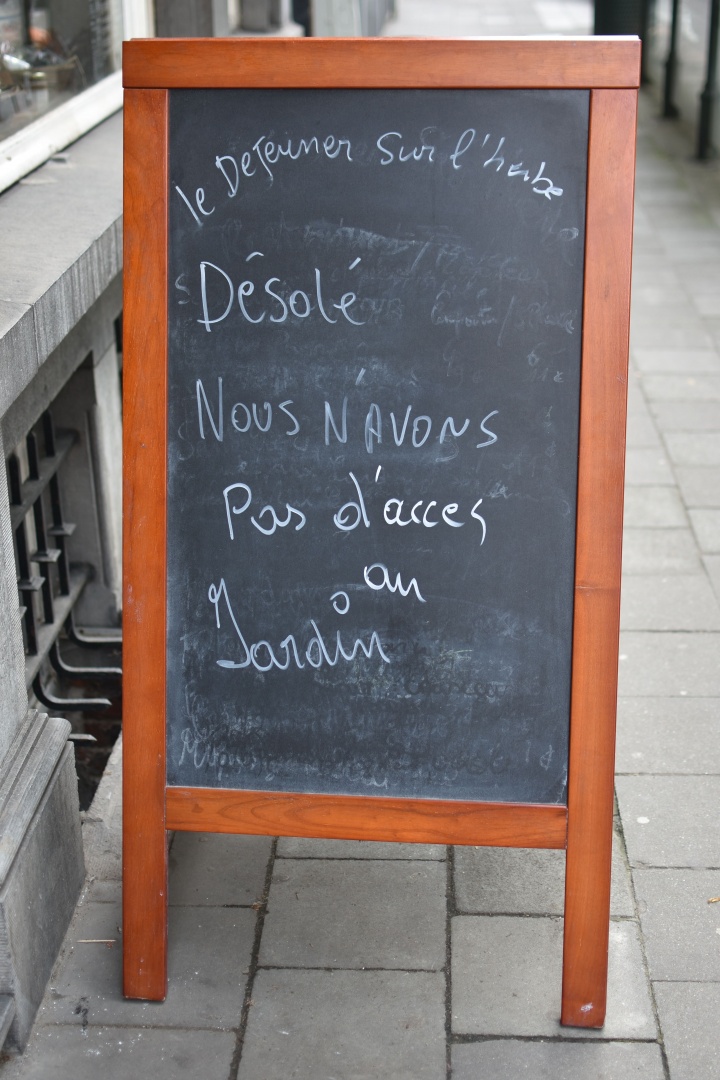 le Dejeuner sur l'herbe
Désolé
Nous N'AVONS
Pas d'acces
au
Jardin